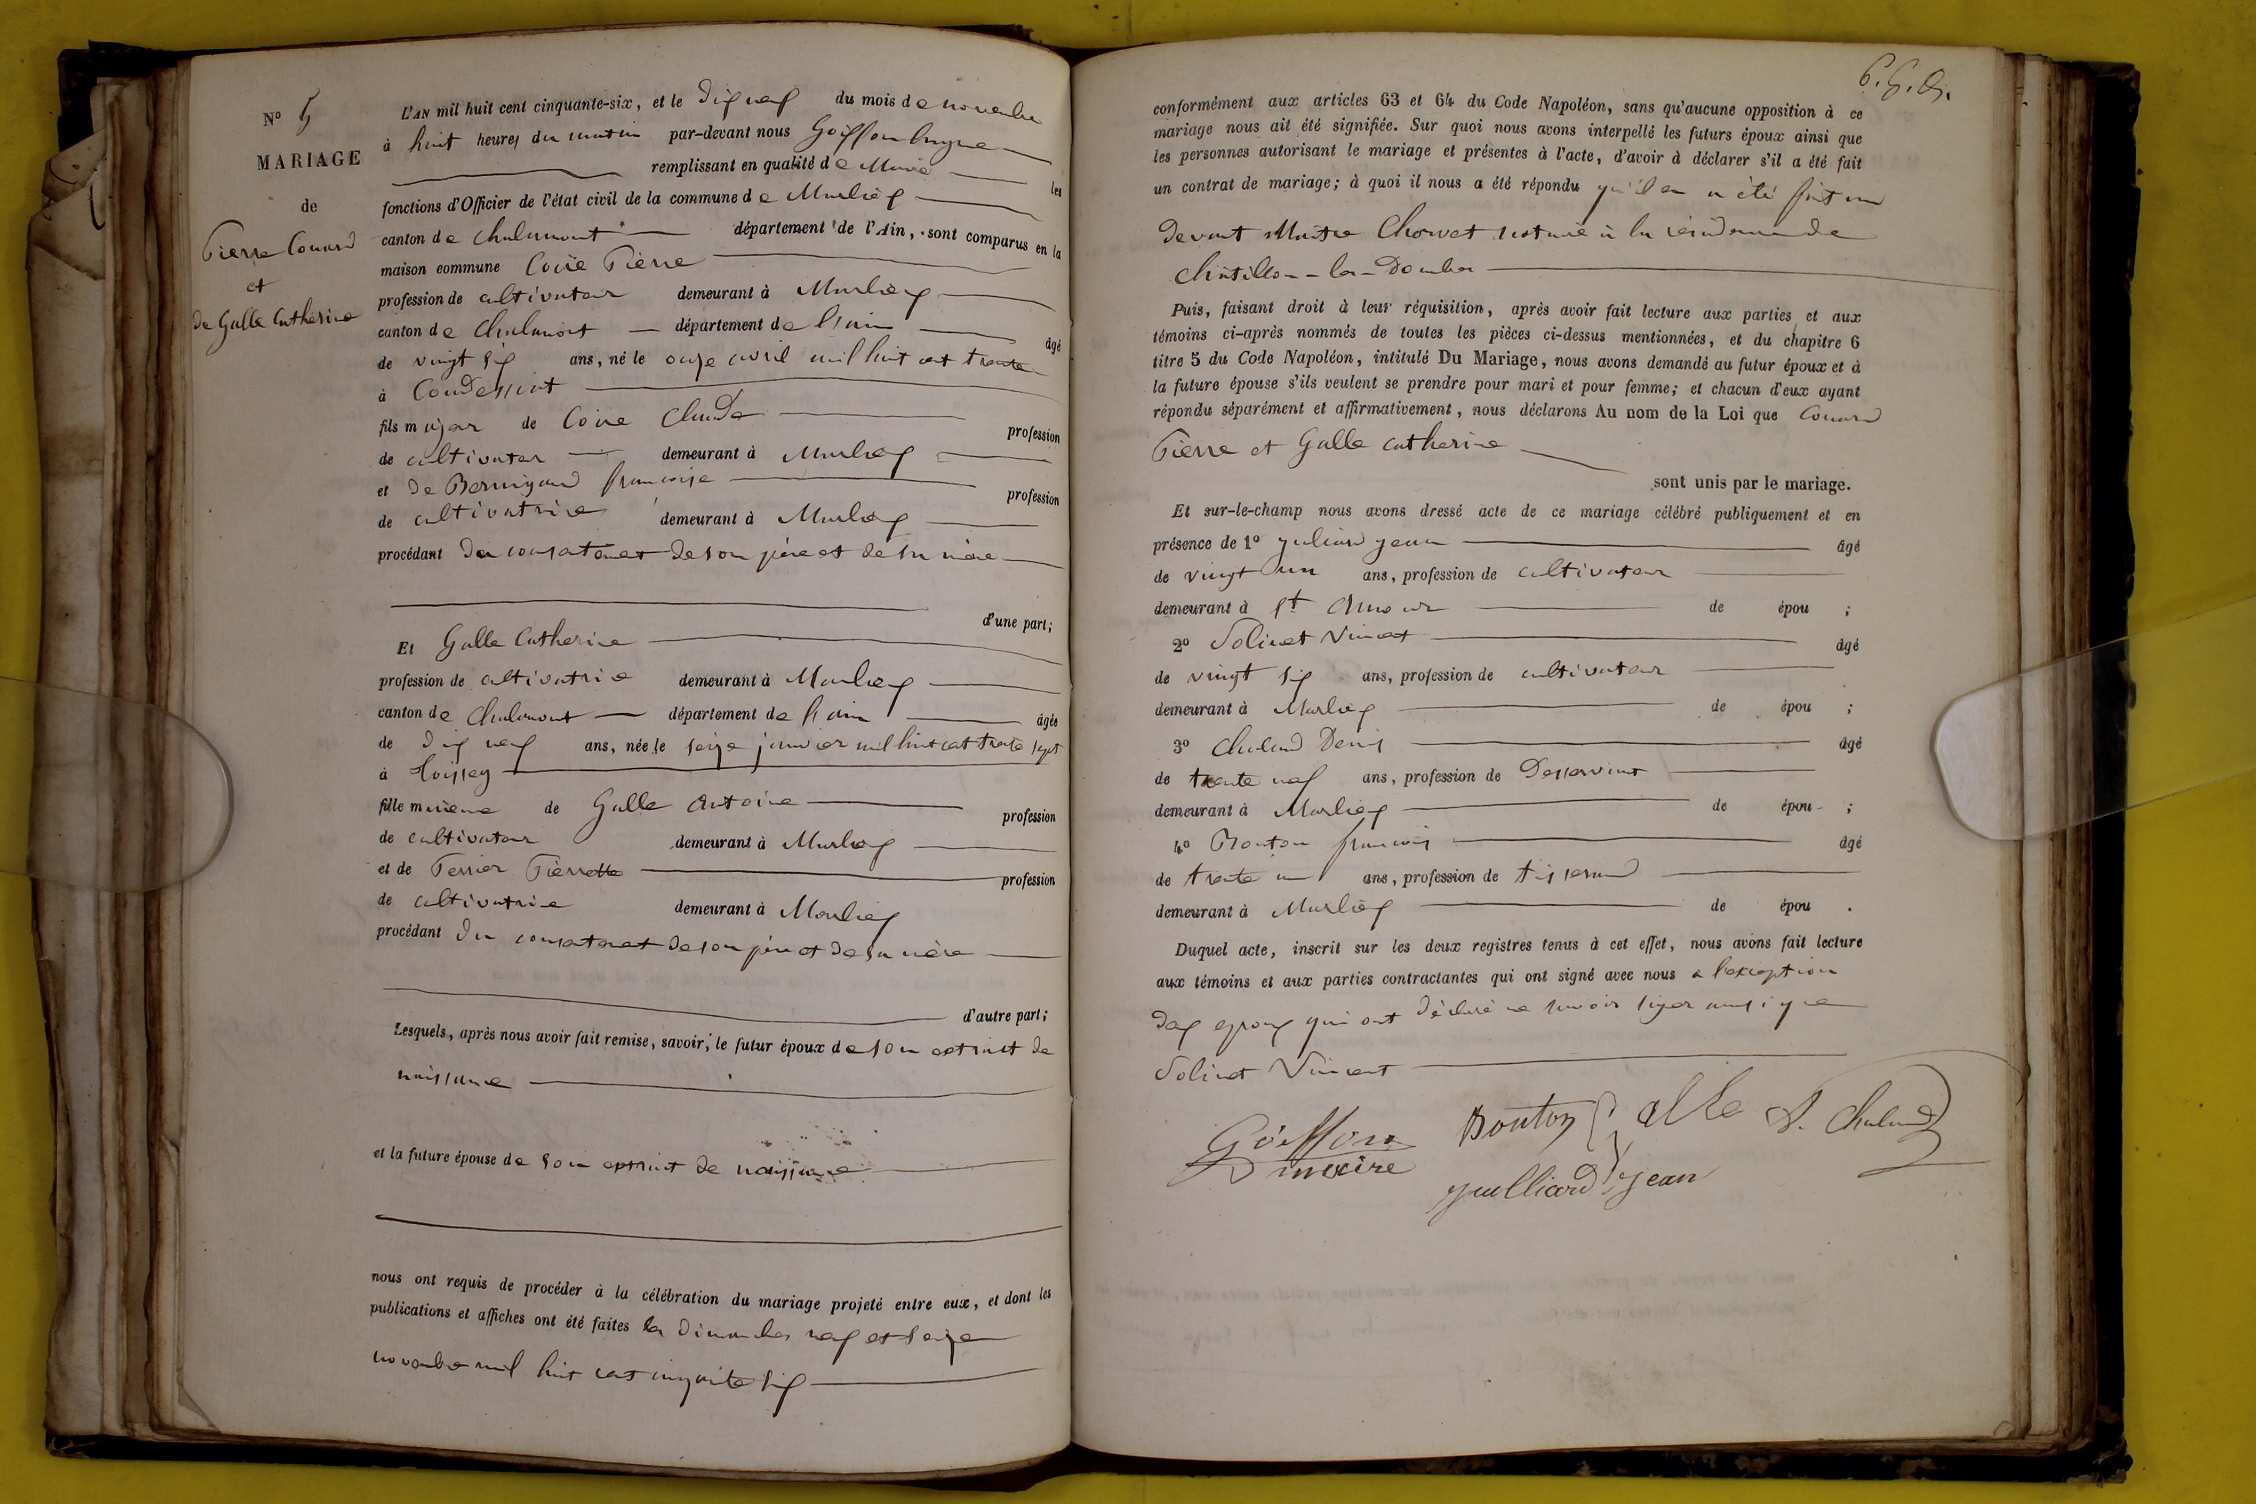 N° 5
MARIAGE
de
Pierre Couard
et
de Galle Catherine
L'AN mil huit cent cinquante-six, et le dix neuf du mois de novembre
à huit heures du matin par-devant nous Goiffon
remplissant en qualité de Maire les
fonctions d'Officier de l'état civil de la commune de Marlieux
canton de Chalamont département de l'Ain, sont comparus en la
maison commune Pierre
profession de cultivateur demeurant à Marlieux
canton de Chalamont département de l'ain âgé
de vingt six ans, né le onze avril mil huit cent trente
à Condessiat
fils majeur de Claude profession
de cultivateur demeurant à Marlieux
et de Bernigaud françoise profession
de cultivatrice demeurant à Marlieux
procédant du consentement de son père et de sa mère
d'une part;
Et Galle Catherine
profession de cultivatrice demeurant à Marlieux
canton de Chalamont département de l'ain âgée
de dix neuf ans, née le seize janvier mil huit cent trente sept
à
fille mineure de Galle Antoine profession
de cultivateur demeurant à Marlieux
et de Perrier Pierrette profession
de cultivatrice demeurant à Marlieux
procédant du consentement de son père et de sa mère
d'autre part;
Lesquels, après nous avoir fait remise, savoir; le futur époux de son extrait de
naissance
et la future épouse de son extrait de naissance
nous ont requis de procéder à la célébration du mariage projeté entre eux, et dont les
publications et affiches ont été faites les dimanches neuf et seize
novembre mil huit cent cinquante six
conformément aux articles 63 et 64 du Code Napoléon, sans qu'aucune opposition à ce
mariage nous ait été signifiée. Sur quoi nous avons interpellé les futurs époux ainsi que
les personnes autorisant le mariage et présentes à l'acte, d'avoir à déclarer s'il a été fait
un contrat de mariage; à quoi il nous a été répondu qu'il en a été fait un
devant Maître Chorvet notaire à la résidence de
Châtillon-les-Dombes
Puis, faisant droit à leur réquisition, après avoir fait lecture aux parties et aux
témoins ci-après nommés de toutes les pièces ci-dessus mentionnées, et du chapitre 6
titre 5 du Code Napoléon, intitulé Du Mariage, nous avons demandé au futur époux et à
la future épouse s'ils veulent se prendre pour mari et pour femme; et chacun d'eux ayant
répondu séparément et affirmativement, nous déclarons Au nom de la Loi que Couard
Pierre et Galle Catherine
sont unis par le mariage.
Et sur-le-champ nous avons dressé acte de ce mariage célébré publiquement et en
présence de 1° Juliard Jean âgé
de vingt un ans, profession de cultivateur
demeurant à St de épou ;
2° Solinet Vincent âgé
de vingt six ans, profession de cultivateur
demeurant à Marlieux de épou ;
3° Chaland Denis âgé
de trente neuf ans, profession de Desservant
demeurant à Marlieux de épou ;
4° Bouton françois âgé
de trente un ans, profession de tisserand
demeurant à Marlieux de épou .
Duquel acte, inscrit sur les deux registres tenus à cet effet, nous avons fait lecture
aux témoins et aux parties contractantes qui ont signé avec nous a l'exception
des epoux qui ont déclaré ne savoir signer ainsi que
Solinet Vincent
Goiffon Bouton Chaland
maire Juilliard Jean